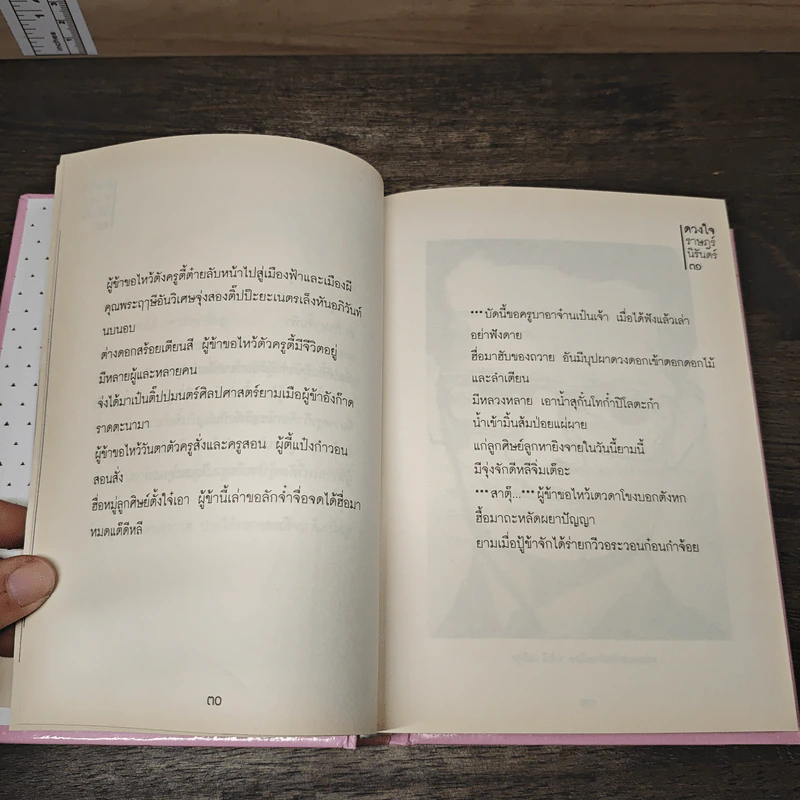 ผู้ข้าขอไหว้ตังครูตี้ต๋ายลับหน้าไปสู่เมืองฟ้าและเมืองผี
คุณพระฤๅษีอันวิเศษจุ่งสองติ๊ปป๊ะยะเนตรเล็งหันอภิวันท์
นบนอบ
ต่างดอกสร้อยเตียนสี ผู้ข้าขอไหว้ตัวครูตี้มีจีวิตอยู่
มีหลายผู้และหลายคน
จ่งได้มาเป็นติ๊ปปมนตร์ศิลปศาสตร์ยามเมื่อผู้ข้าอังก๊าด
ราดตะนามา
ผู้ข้าขอไหว้วันตาตัวครูสั่งและครูสอน ผู้ตี้แป๋งกำวอน
สอนสั่ง
ฮื่อหมู่ลูกศิษย์ตั้งใจ๋เอา ผู้ข้านี้เล่าขอลักจ๋ำจื่อจดได้ฮื่อมา
หมดแต๊ดีหลี
๓๐
ดวงใจ
ราษฎร์
นิรันดร์
๓๑
••• บัดนี้ขอครูบาอาจ๋านเป็นเจ้า เมื่อได้ฟังแล้วเล่า
อย่าฟังดาย
ฮื่อมาฮับของถวาย อันมีบุปผาดวงดอกเข้าตอกดอกไม้
และลำเตียน
มีหลวงหลาย เอาน้ำสุกั๋นโทก๋ำปิโลตะก๋ำ
น้ำเข้ามิ้นส้มป่อยแผ่ผาย
แก่ลูกศิษย์ลูกหายิงจายในวันนี้ยามนี้
มีจุ่งจักดีหลีจิ่มเต๊อะ
••• สาตุ๊...••• ผู้ข้าขอไหว้เตวดาโขงบอกตังหก
ฮื่อมาถะหลัดผยาปัญญา
ยามเมื่อปู้ข้าจักได้ร่ายกวีวอระวอนก่อนกำจ้อย